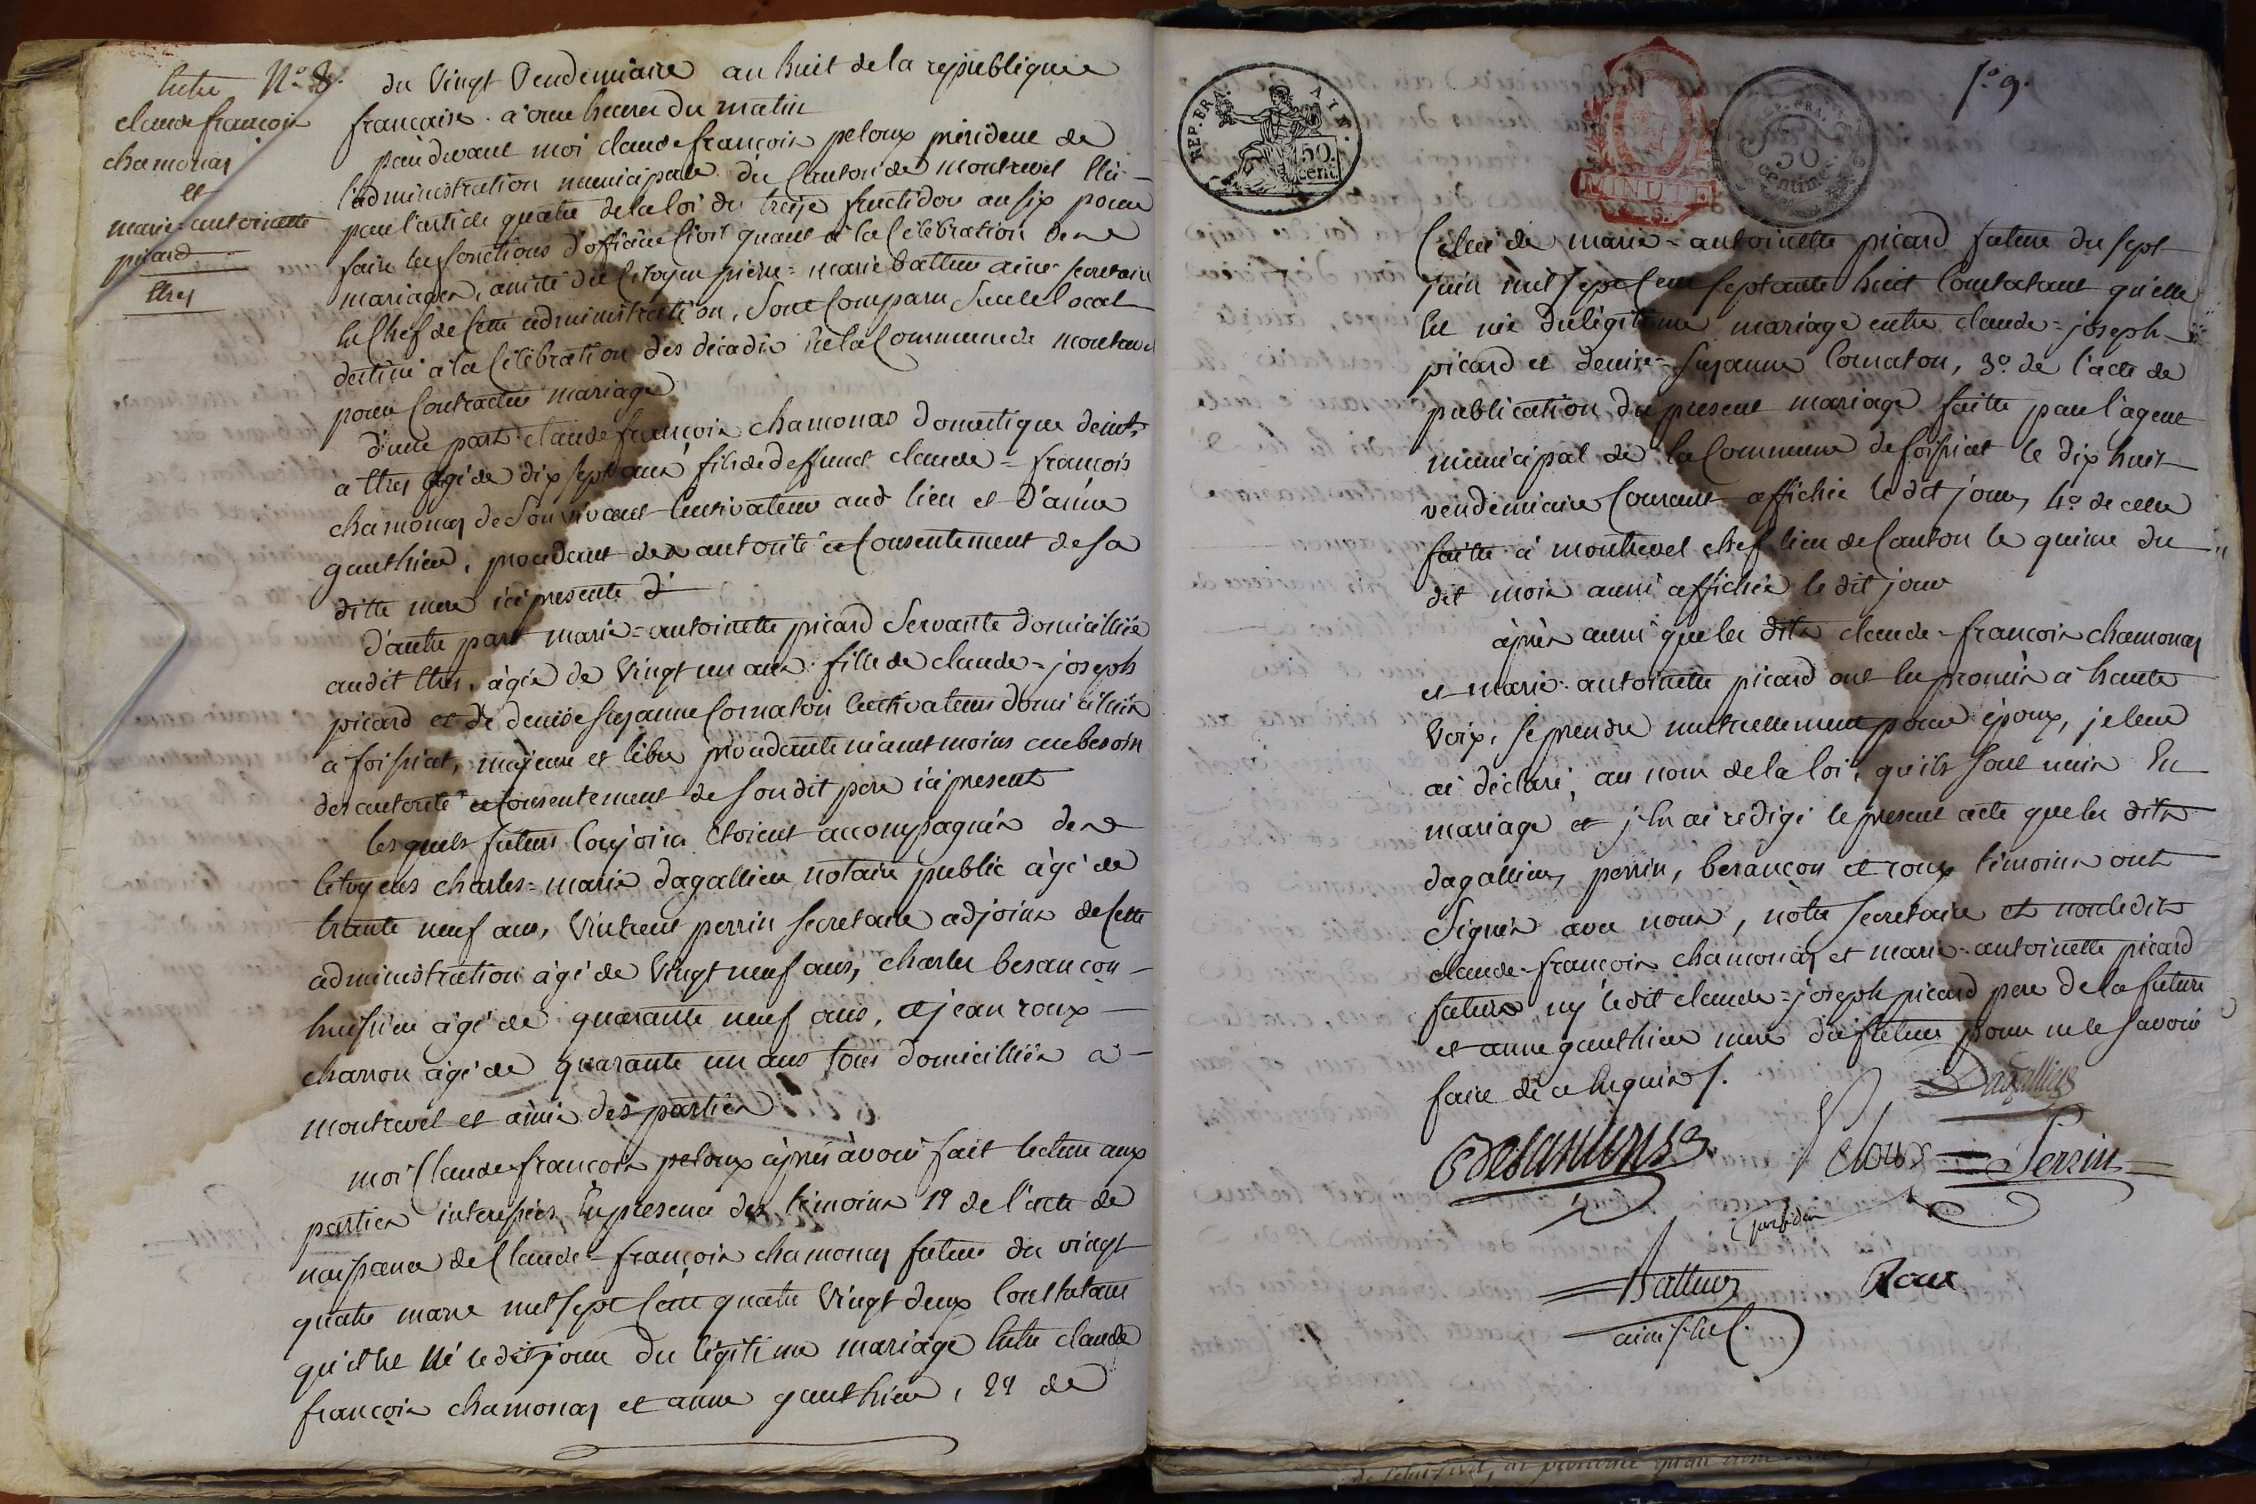 N.o 8.
Entre
claude françois
chamonay
et
marie=antoinette
picard
Etrez
du Vingt Vendemiaire an huit de la republique
française a onze heures du matin
pardevant moi claude françois peloux president de
l'administration municipale du Canton de montrevel Elu
par l'article quatre de la loi du treize fructidor an six pour
faire les fonctions d'officier Civil quant à la Célébration de
mariages, assisté du Citoyen pierre=marie battur ainé secretaire
en Chef de Cette administration, Sont Comparu Sur le local
destiné à la Célébration des décadis de la Commune de montrevel
pour Contracter mariage
d'une part claude françois chamonas domestique demt
a Etrez agé de dix sept ans fils de deffunct claude=françois
chamonay de Son vivant Cultivateur aud lieu et d'anne
gauthier, procedant des autorité et Consentement de sa
ditte mere ici presente d
d'autre part marie=antoinette picard Servante domicilliée
audit Etrez, agée de Vingt un ans fille de claude=joseph
picard et de denise Suzanne Cornaton Cultivateurs domicilliés
a foissiat, majeure et libre procedante néantmoins au besoin
des autorité et Consentement de Son dit pere ici present
les quels futurs Conjoins Etoient accompagnés de
Citoyens charles=marie dagallier notaire public âgé de
trente neuf ans, Vincent perrin secretaire adjoint de Cette
administration âgé de Vingt neuf ans, charles besançon
huissier âgé de quarante neuf ans, et jean roux
charron âgé de quarante un ans tous domicilliés a
montrevel et amis des parties
moi Claude françois peloux après avoir fait lecture aux
parties interessées, En presence des témoins 1o de l'acte de
naissance de Claude=françois chamonay futur du vingt
quatre mars mil sept Cent quatre Vingt deux Constatant
qu'il Est né le dit jour du légitime mariage Entre claude
françois chamonay et anne gauthier, 2o de
REP. FRA.
50
cent.
MINUTE
REP. FRA.
50
centimes
f.o 9.
Celui de marie=antoinette picard future du sept
juin mil sept Cent septante huit Constatant qu'elle
Est née du légitime mariage entre claude=joseph
picard et denise=Suzanne Cornaton, 3o de l'acte de
publication du present mariage faitte par l'agent
municipal de la Commune de foissiat le dix huit
vendemiaire Courant affichée le dit jour, 4o de celle
faitte à montrevel chef lieu de Canton le quinze du
dit mois aussi affichée le dit jour
après aussi que les dits claude=françois chamonay
et marie=antoinette picard ont Eu promis a haute
Voix, se prendre mutuellement pour époux, je leur
ai déclaré, au nom de la loi, qu'ils sont unis En
mariage et j'En ai rédigé le present acte que les dits
dagallier, perrin, besançon et roux témoins ont
Signés avec nous, nôtre secretaire et non les dits
claude=françois chamonay et marie=antoinette picard
futurs ny le dit claude=joseph picard pere de la future
et anne gauthier mere du futur pour ne le savoir
faire de ce Enquis /.
Dagallier
Besançon
Peloux
Perrin
president
Battur
Roux
ainé